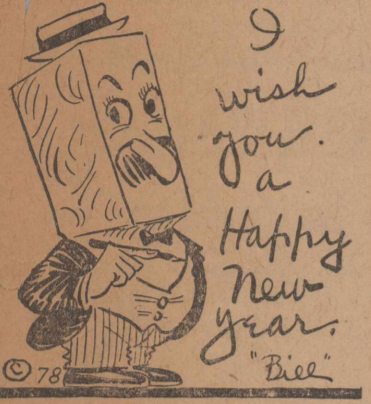 I
wish
you.
a
Happy
New
Year.
"Bill"
© 78